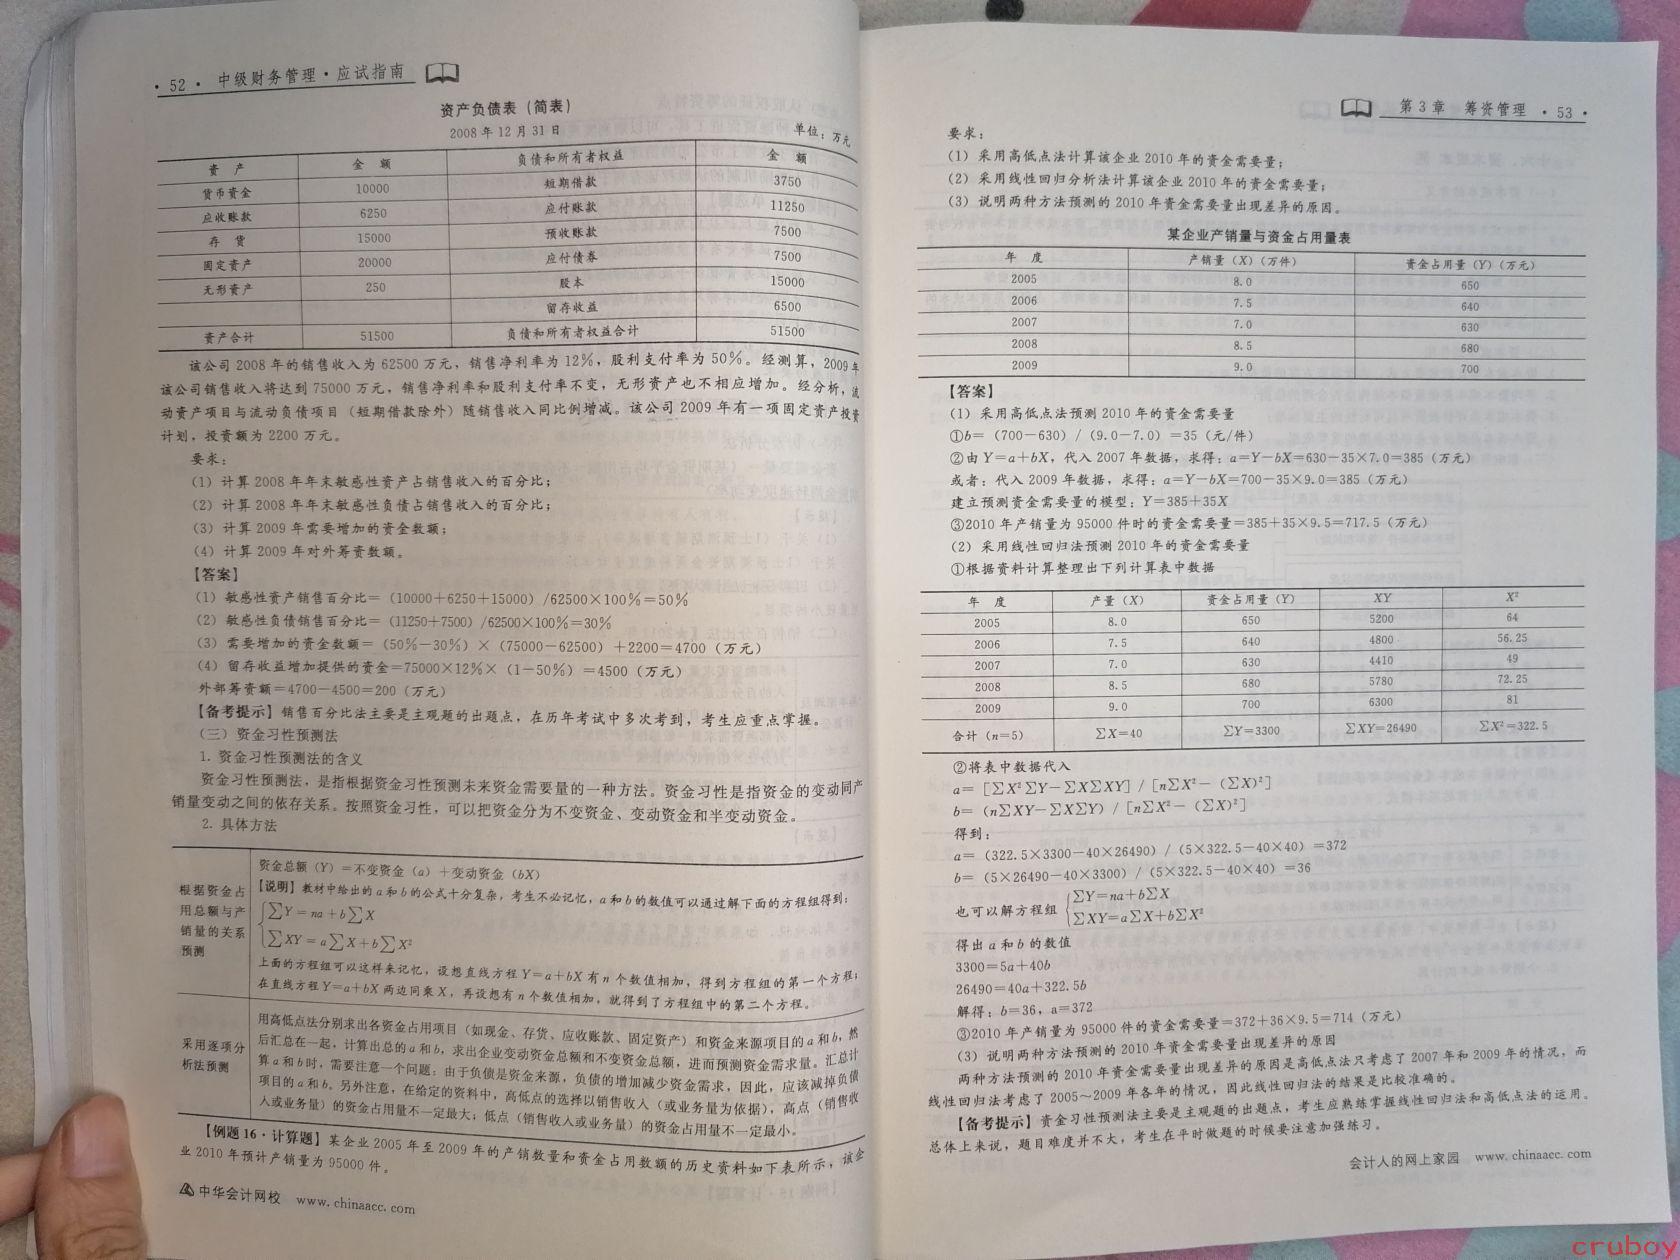 · 52 · 中级财务管理·应试指南
资产负债表（简表）
2008年12月31日 单位：万元
资 产 金 额 负债和所有者权益 金 额
货币资金 10000 短期借款 3750
应收账款 6250 应付账款 11250
存 货 15000 预收账款 7500
固定资产 20000 应付债券 7500
无形资产 250 股本 15000
留存收益 6500
资产合计 51500 负债和所有者权益合计 51500
该公司2008年的销售收入为62500万元，销售净利率为12%，股利支付率为50%。经测算，2009年
该公司销售收入将达到75000万元，销售净利率和股利支付率不变，无形资产也不相应增加。经分析，流
动资产项目与流动负债项目（短期借款除外）随销售收入同比例增减。该公司2009年有一项固定资产投资
计划，投资额为2200万元。
要求：
（1）计算2008年年末敏感性资产占销售收入的百分比；
（2）计算2008年年末敏感性负债占销售收入的百分比；
（3）计算2009年需要增加的资金数额；
（4）计算2009年对外筹资数额。
【答案】
（1）敏感性资产销售百分比＝（10000＋6250＋15000）/62500×100％＝50％
（2）敏感性负债销售百分比＝（11250＋7500）/62500×100％＝30％
（3）需要增加的资金数额＝（50％－30％）×（75000－62500）＋2200＝4700（万元）
（4）留存收益增加提供的资金＝75000×12％×（1－50％）＝4500（万元）
外部筹资额＝4700－4500＝200（万元）
【备考提示】销售百分比法主要是主观题的出题点，在历年考试中多次考到，考生应重点掌握。
（三）资金习性预测法
1. 资金习性预测法的含义
资金习性预测法，是指根据资金习性预测未来资金需要量的一种方法。资金习性是指资金的变动同产
销量变动之间的依存关系。按照资金习性，可以把资金分为不变资金、变动资金和半变动资金。
2. 具体方法
根据资金占
用总额与产
销量的关系
预测
资金总额（Y）＝不变资金（a）＋变动资金（bX）
【说明】教材中给出的a和b的公式十分复杂，考生不必记忆，a和b的数值可以通过解下面的方程组得到：
∑Y＝na＋b∑X
∑XY＝a∑X＋b∑X²
上面的方程组可以这样来记忆，设想直线方程Y＝a＋bX有n个数值相加，得到方程组的第一个方程；
在直线方程Y＝a＋bX两边同乘X，再设想有n个数值相加，就得到了方程组中的第二个方程。
采用逐项分
析法预测
用高低点法分别求出各资金占用项目（如现金、存货、应收账款、固定资产）和资金来源项目的a和b，然
后汇总在一起，计算出总的a和b，求出企业变动资金总额和不变资金总额，进而预测资金需求量。汇总计
算a和b时，需要注意一个问题：由于负债是资金来源，负债的增加减少资金需求，因此，应该减掉负债
项目的a和b。另外注意，在给定的资料中，高低点的选择以销售收入（或业务量为依据），高点（销售收
入或业务量）的资金占用量不一定最大；低点（销售收入或业务量）的资金占用量不一定最小。
【例题16·计算题】某企业2005年至2009年的产销数量和资金占用数额的历史资料如下表所示，该企
业2010年预计产销量为95000件。
中华会计网校 www.chinaacc.com
第3章 筹资管理 · 53 ·
要求：
（1）采用高低点法计算该企业2010年的资金需要量；
（2）采用线性回归分析法计算该企业2010年的资金需要量；
（3）说明两种方法预测的2010年资金需要量出现差异的原因。
某企业产销量与资金占用量表
年 度 产销量（X）（万件） 资金占用量（Y）（万元）
2005 8.0 650
2006 7.5 640
2007 7.0 630
2008 8.5 680
2009 9.0 700
【答案】
（1）采用高低点法预测2010年的资金需要量
①b＝（700－630）/（9.0－7.0）＝35（元/件）
②由Y＝a＋bX，代入2007年数据，求得：a＝Y－bX＝630－35×7.0＝385（万元）
或者：代入2009年数据，求得：a＝Y－bX＝700－35×9.0＝385（万元）
建立预测资金需要量的模型：Y＝385＋35X
③2010年产销量为95000件时的资金需要量＝385＋35×9.5＝717.5（万元）
（2）采用线性回归法预测2010年的资金需要量
①根据资料计算整理出下列计算表中数据
年 度 产量（X） 资金占用量（Y） XY X²
2005 8.0 650 5200 64
2006 7.5 640 4800 56.25
2007 7.0 630 4410 49
2008 8.5 680 5780 72.25
2009 9.0 700 6300 81
合计（n＝5） ∑X＝40 ∑Y＝3300 ∑XY＝26490 ∑X²＝322.5
②将表中数据代入
a＝［∑X²∑Y－∑X∑XY］/［n∑X²－（∑X）²］
b＝（n∑XY－∑X∑Y）/［n∑X²－（∑X）²］
得到：
a＝（322.5×3300－40×26490）/（5×322.5－40×40）＝372
b＝（5×26490－40×3300）/（5×322.5－40×40）＝36
也可以解方程组 ∑Y＝na＋b∑X
∑XY＝a∑X＋b∑X²
得出a和b的数值
3300＝5a＋40b
26490＝40a＋322.5b
解得：b＝36，a＝372
③2010年产销量为95000件的资金需要量＝372＋36×9.5＝714（万元）
（3）说明两种方法预测的2010年资金需要量出现差异的原因
两种方法预测的2010年资金需要量出现差异的原因是高低点法只考虑了2007年和2009年的情况，而
线性回归法考虑了2005～2009年各年的情况，因此线性回归法的结果是比较准确的。
【备考提示】资金习性预测法主要是主观题的出题点，考生应熟练掌握线性回归法和高低点法的运用。
总体上来说，题目难度并不大，考生在平时做题的时候要注意加强练习。
会计人的网上家园 www.chinaacc.com
cruboy